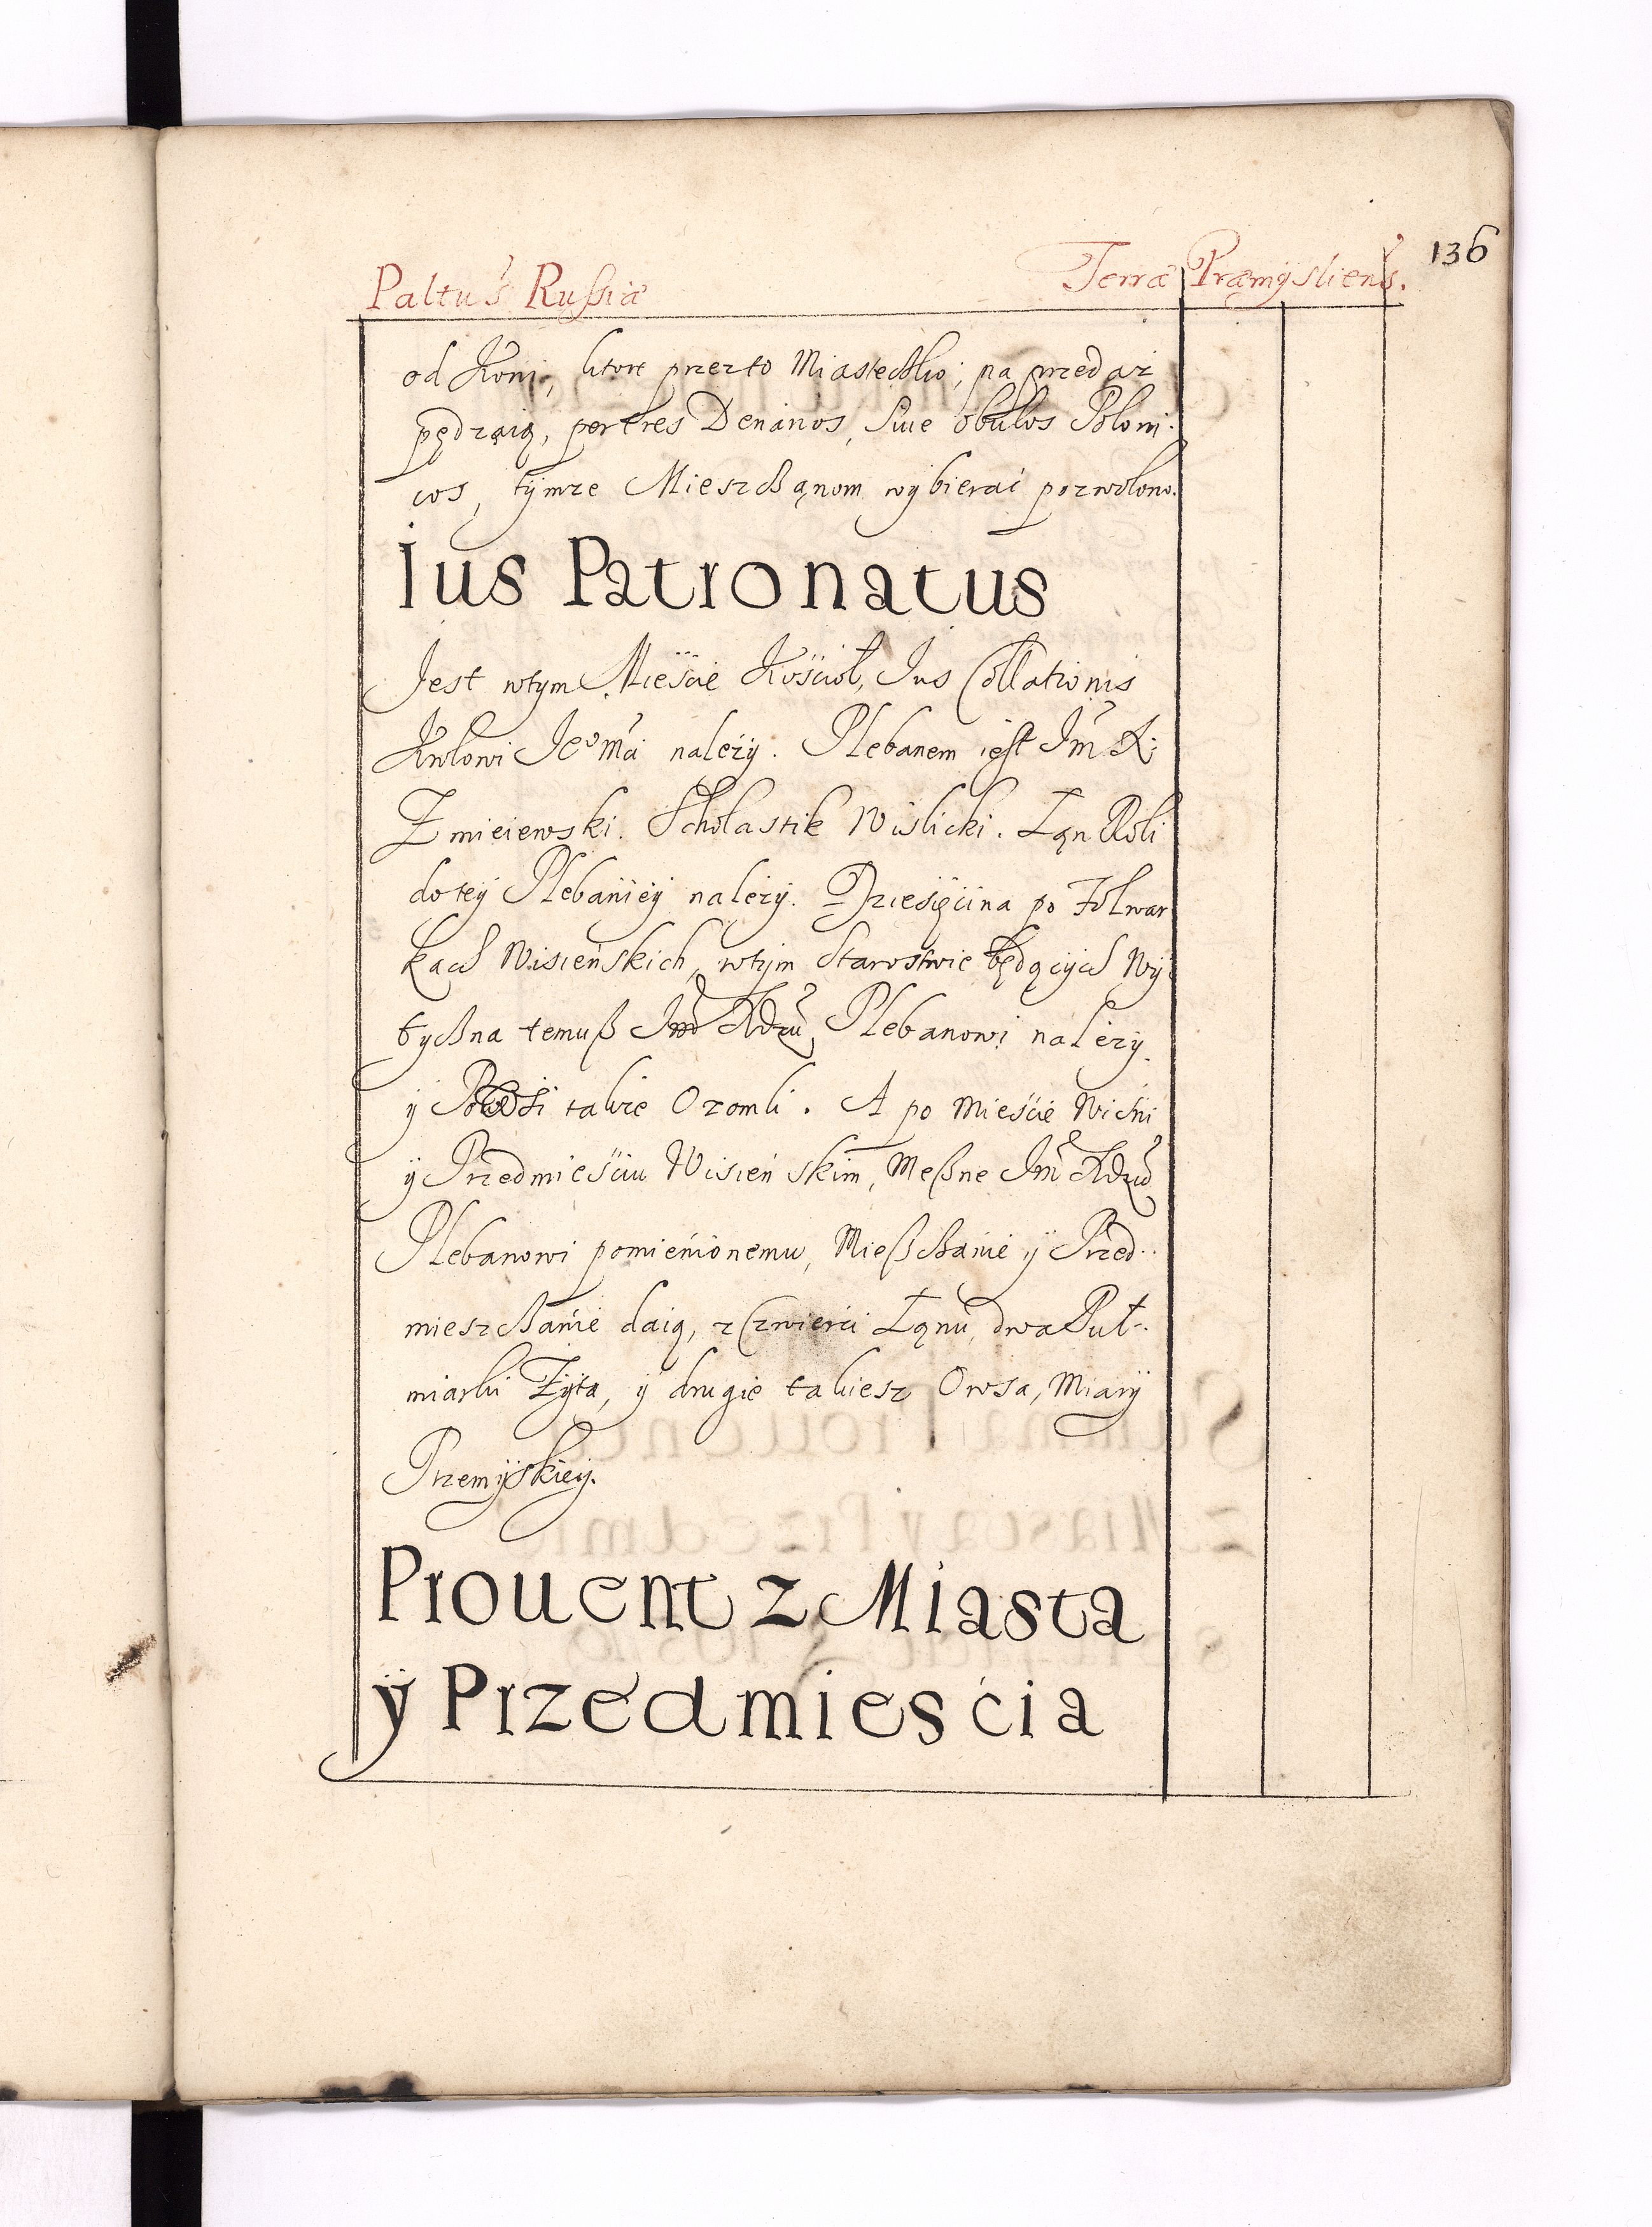 136
Paltus Russiæ Terræ Præmÿsliens.
od Koni, ktore przez to Miasteczko, na przedaż
pędzaią, per tres Denarios, siue obulos Poloni-
cos, tÿmże Mieszczanom wÿbierać pozwolono.
Ius Patronatus
Jest wtym Mieście Kościoł, Jus Collationis
Krolowi Jeo mći należÿ. Plebanem iest Jm̃ X:
Zmieiewski. Scholastik Wislicki. Łan Roli
do teÿ Plebaniieÿ należÿ. Dziesięcina po Folwar
kach Wisienskich, wtÿm Starostwie będącÿch Wÿ
tyczna temuß Jm̃ Xdzu Plebanowi należy.
ÿ takze Ozomli. A po Mieście Wiśni
ÿ Przedmieściu Wisienskim, Meßne Jm̃ Xdzu
Plebanowi pomienionemu, Mießczanie ÿ Przed-
mieszczanie daią, z Czwierci Łanu, dwa Puł-
miarki Żÿta, ÿ drugie takiesz Owsa, Miarÿ
Przemÿskieÿ.
Prouent z Miasta
ÿ Przedmieścia